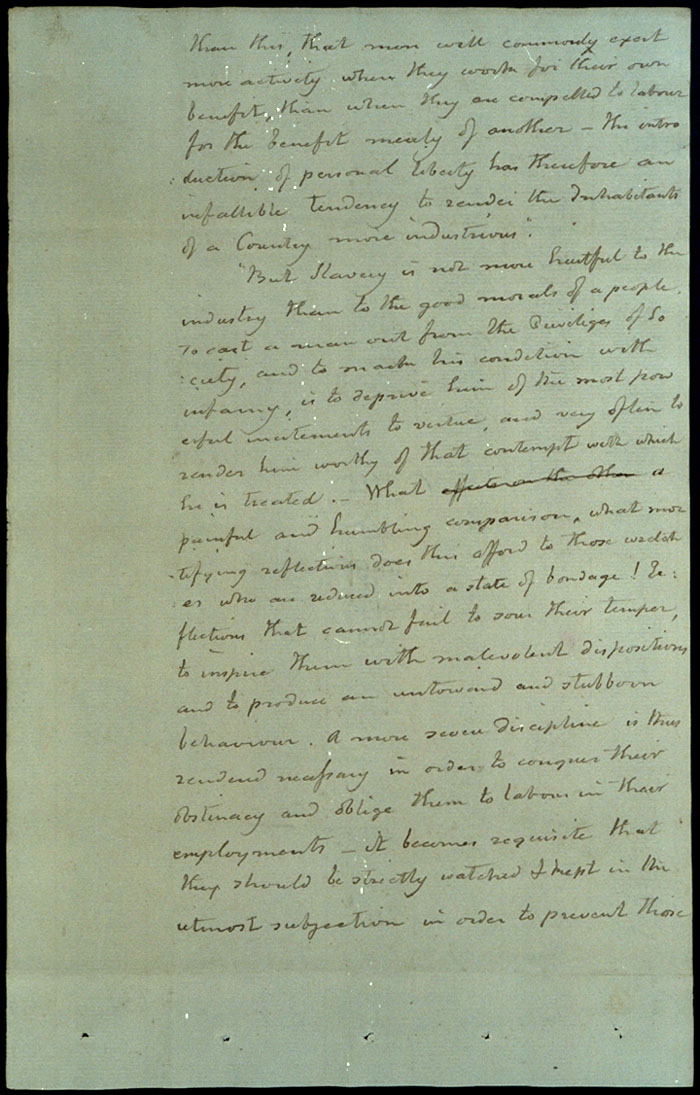 than this, that men will commonly exert
more activity when they work for their own
benefit, than when they are compelled to labour
for the benefit merely of another – the intro
:duction of personal liberty has therefore an
infallible tendency to render the Inhabitants
of a Country more industrious".
"But Slavery is not more hurtful to the
industry than to the good morals of a people.
To cast a man out from the Privileges of So
:ciety, and to mark his condition with
infamy, is to deprive him of the most pow
erful incitements to virtue, and very often to
render him worthy of that contempt with which
he is treated. – What effects on the other a
painful and humbling comparison, what mor
:tifying reflections does this afford to those wretch
:es who are reduced into a state of bondage! Re:
flections that cannot fail to sour their temper,
to inspire them with malevolent dispositions
and to produce an untoward and stubborn
behaviour. A more severe discipline is thus
rendered necessary in order to conquer their
obstinacy and oblige them to labour in their
employments – it becomes requisite that
they should be strictly watched & kept in the
utmost subjection in order to prevent those